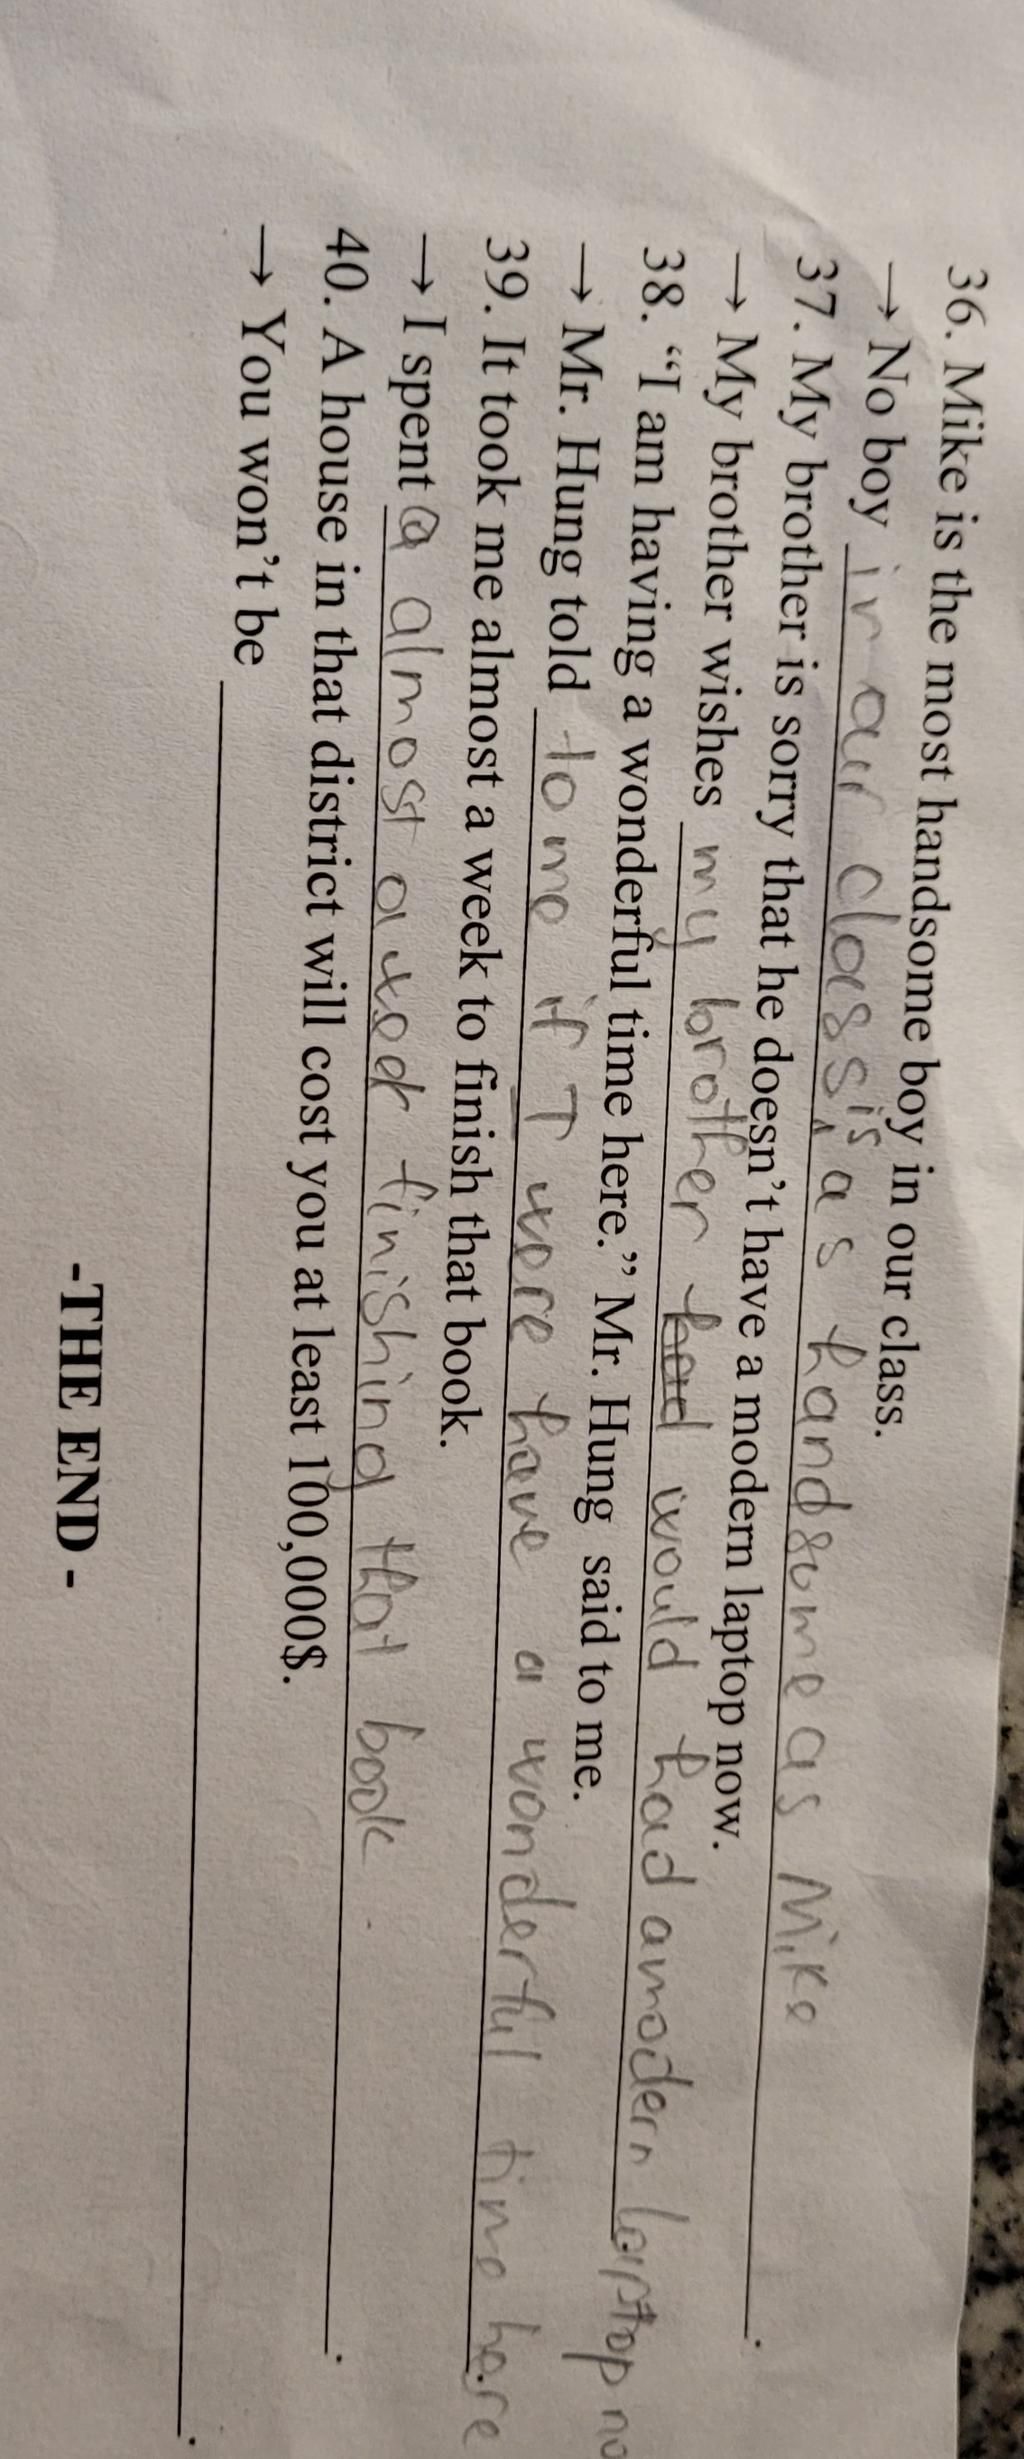 36. Mike is the most handsome boy in our class.
→ No boy in our class is as handsome as Mike.
37. My brother is sorry that he doesn't have a modern laptop now.
→ My brother wishes my brother had would had a modern laptop no
38. “I am having a wonderful time here.” Mr. Hung said to me.
→ Mr. Hung told to me if I were have a wonderful time here.
39. It took me almost a week to finish that book.
→ I spent a almost a week finishing that book.
40. A house in that district will cost you at least 100,000$.
→ You won't be ______.
-THE END -